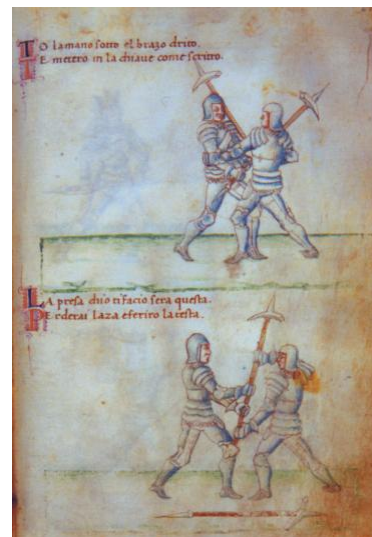 To la mano sotto el brazo drito.
E metero in la chiaue come scritto.
La presa chio ti facio sera questa.
Perderai laza e feriro la testa.